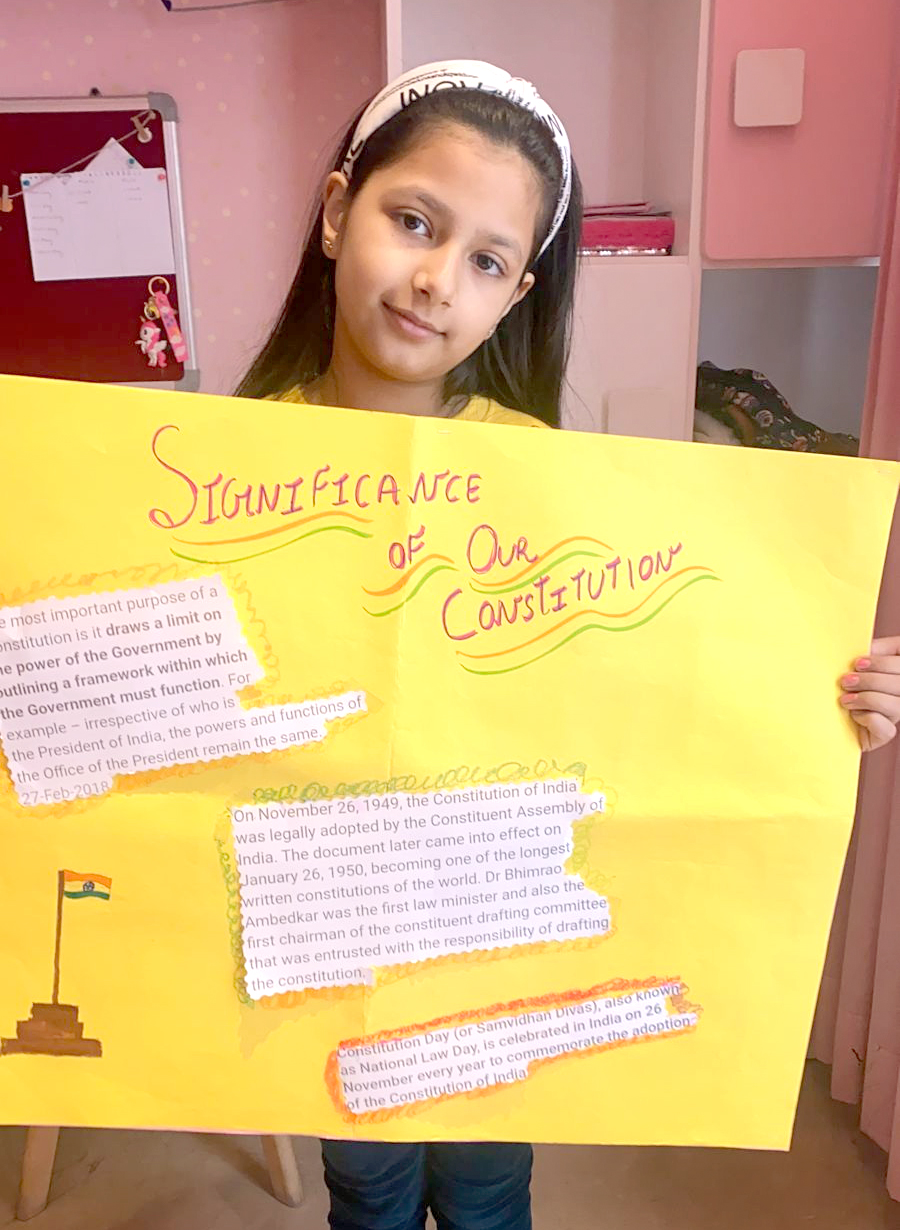 SIGNIFICANCE
OF OUR
CONSTITUTION
most important purpose of a
onstitution is it draws a limit on
he power of the Government by
outlining a framework within which
the Government must function. For
example – irrespective of who is
the President of India, the powers and functions of
the Office of the President remain the same.
27-Feb-2018
On November 26, 1949, the Constitution of India
was legally adopted by the Constituent Assembly of
India. The document later came into effect on
January 26, 1950, becoming one of the longest
written constitutions of the world. Dr Bhimrao
Ambedkar was the first law minister and also the
first chairman of the constituent drafting committee
that was entrusted with the responsibility of drafting
the constitution.
Constitution Day (or Samvidhan Divas), also known
as National Law Day, is celebrated in India on 26
November every year to commemorate the adoption
of the Constitution of India